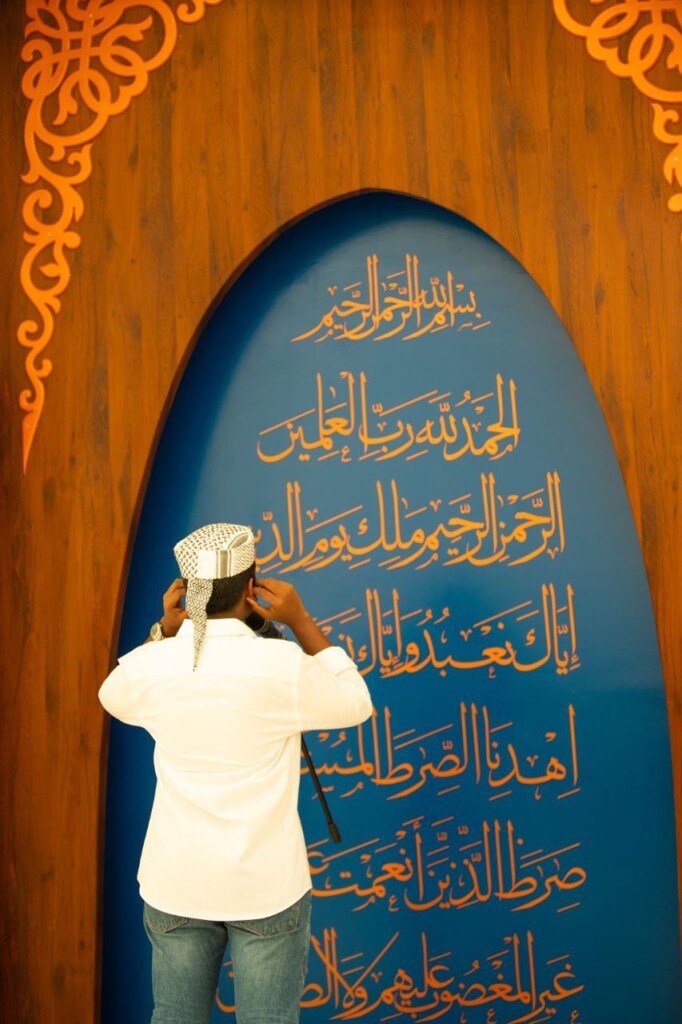 بسم الله الرحمن الرحيم
الحمد لله رب العلمين
الرحمن الرحيم ملك يوم الدين
إياك نعبد وإياك
اهدنا الصرط
صرط الذين أنعمت
غير المغضوب عليهم ولا